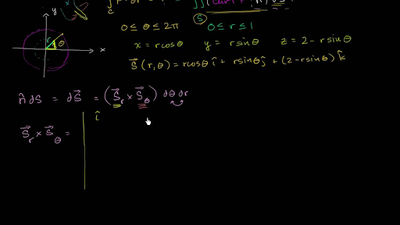 y
r
θ
x
C
0 ≤ θ ≤ 2π 0 ≤ r ≤ 1
x = rcosθ y = rsinθ z = 2 - rsinθ
S⃗(r,θ) = rcosθ î + rsinθ ĵ + (2-rsinθ) k̂
n̂ dS = dS⃗ = (S⃗r × S⃗θ) dθ dr
S⃗r × S⃗θ = | î